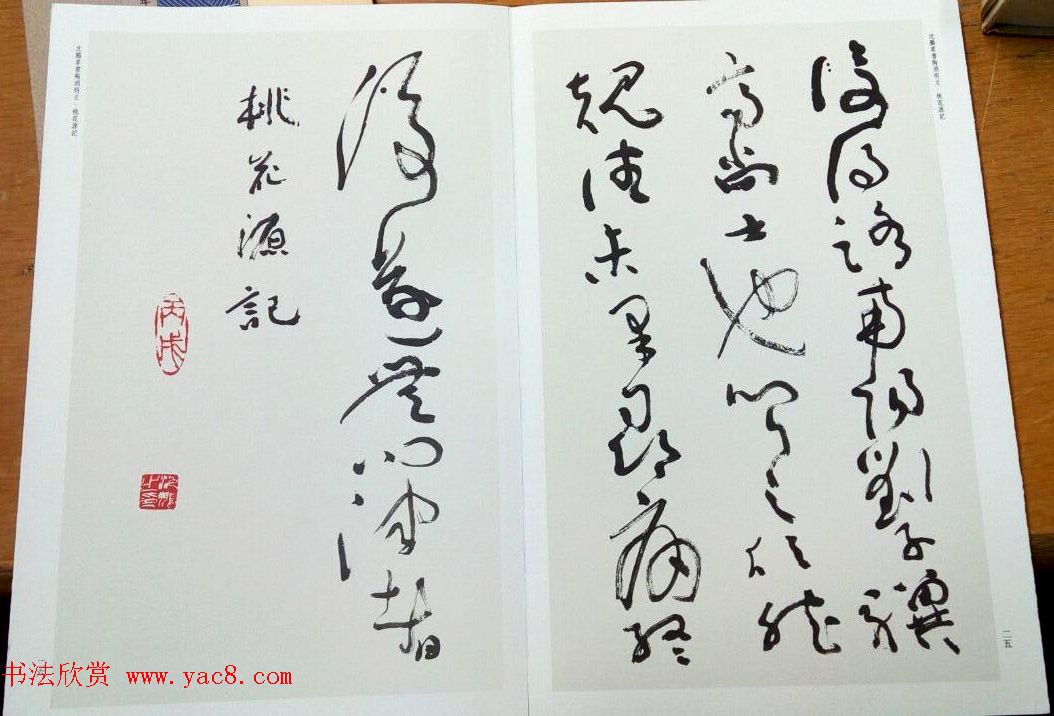 沈鵬草書陶淵明文·桃花源記
復得路南陽劉子驥
高尚士也聞之欣然
規往未果尋病終
二五
後遂無問津者
桃花源記
丙戌
沈鵬之印
沈鵬草書陶淵明文·桃花源記
书法欣赏 www.yac8.com